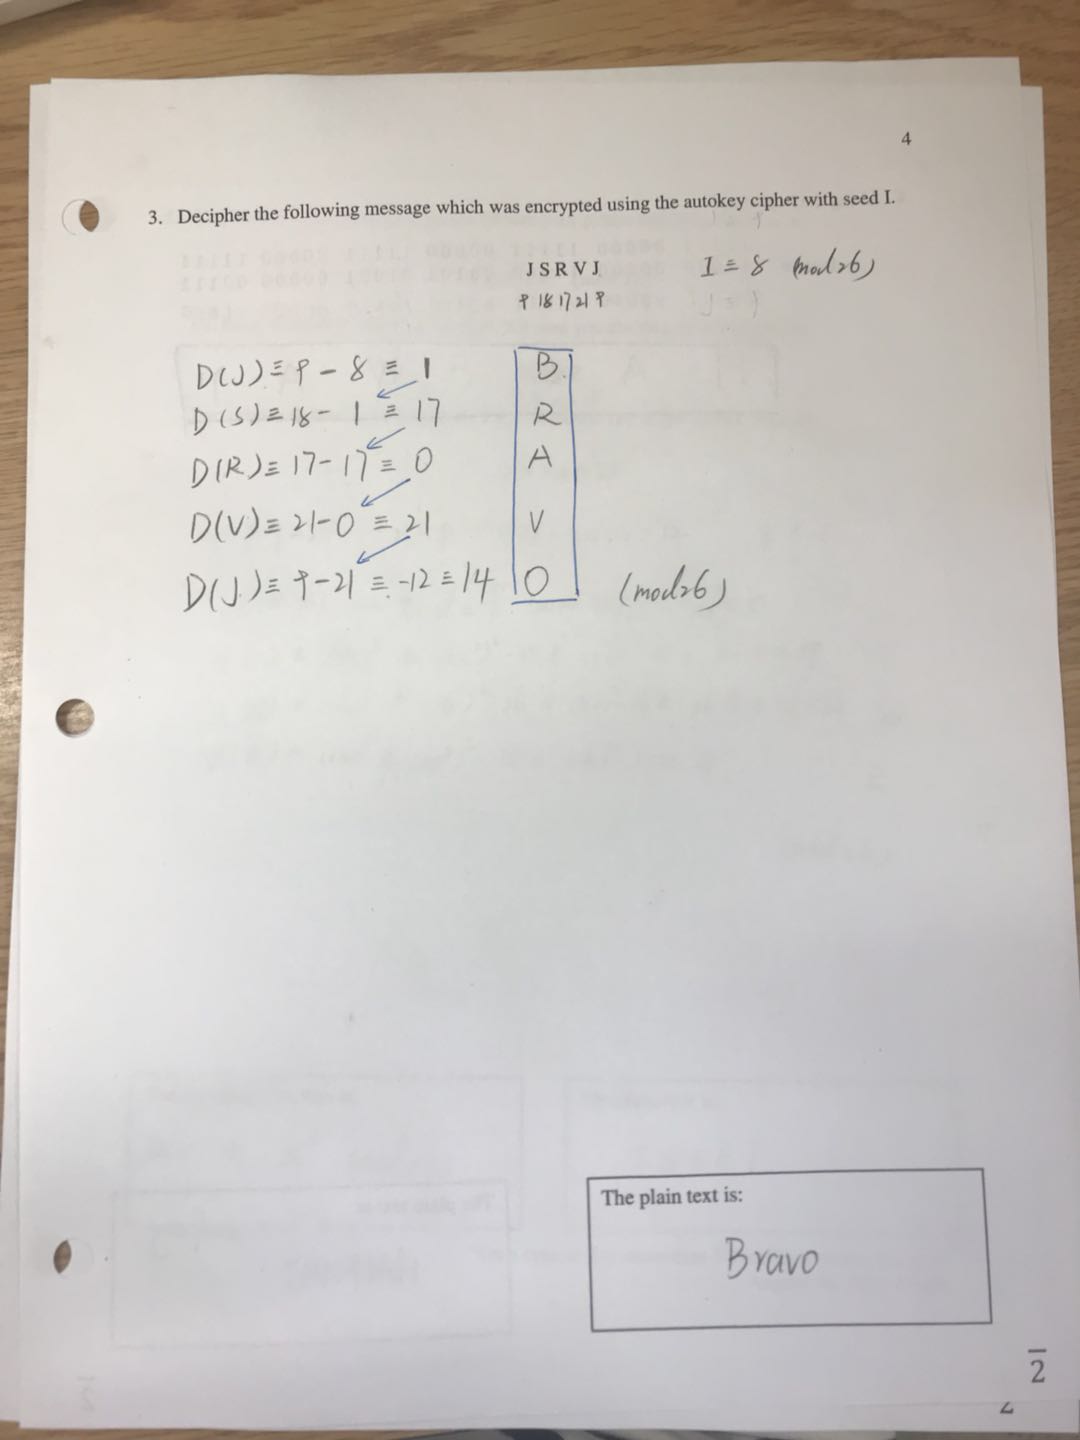 4
3. Decipher the following message which was encrypted using the autokey cipher with seed I.
J S R V J I ≡ 8 (mod 26)
9 18 17 21 9
D(J) ≡ 9 - 8 ≡ 1 B
D(S) ≡ 18 - 1 ≡ 17 R
D(R) ≡ 17 - 17 ≡ 0 A
D(V) ≡ 21 - 0 ≡ 21 V
D(J) ≡ 9 - 21 ≡ -12 ≡ 14 O (mod 26)
The plain text is:
Bravo
2